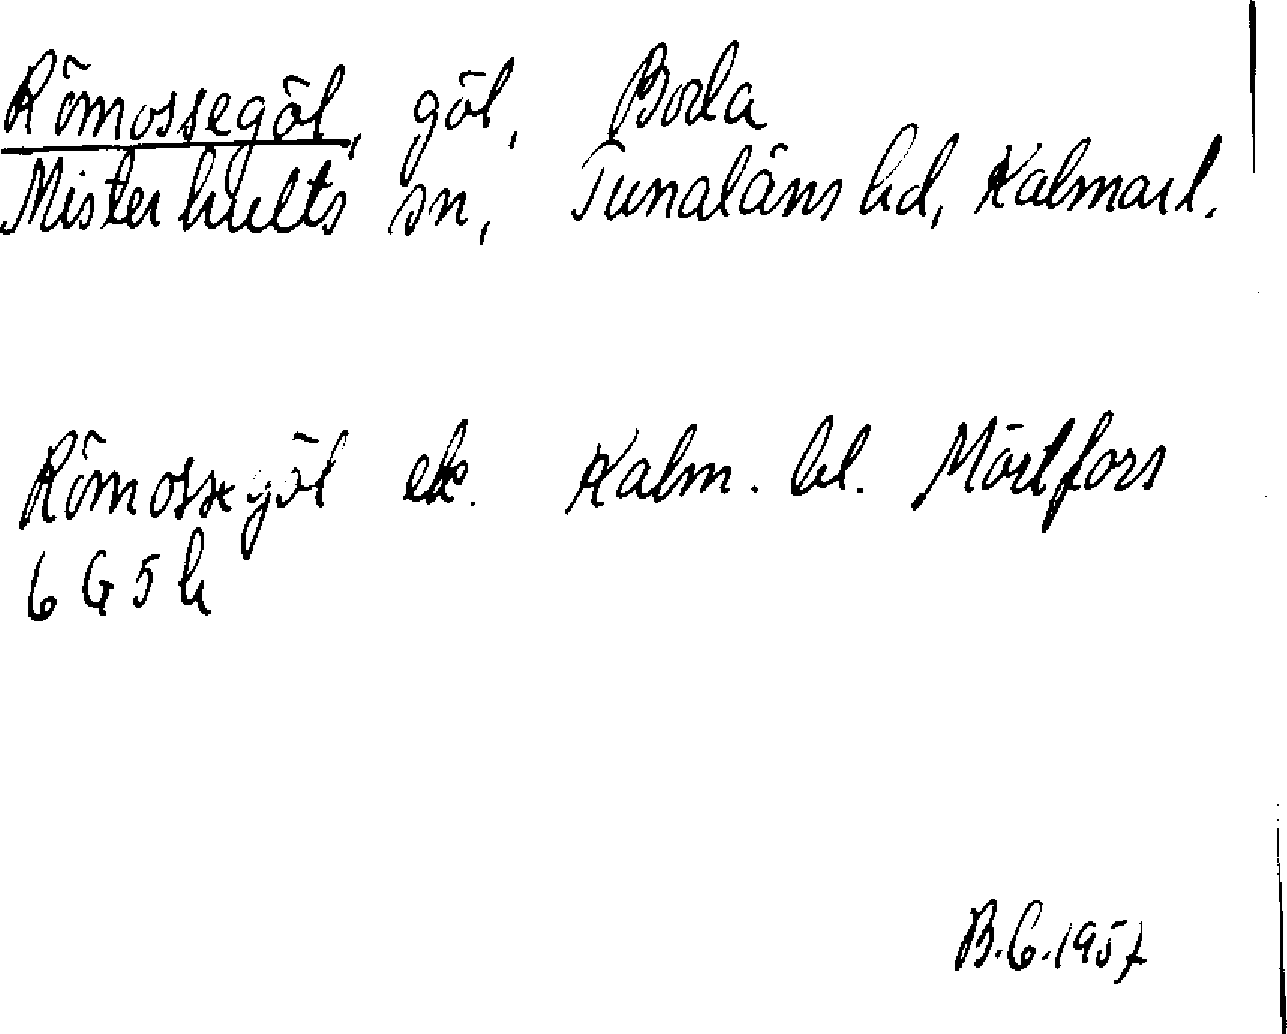 Römossegöl, göl, Boda
Misterhults sn, Tunaläns hd, Kalmarl.
Römossegöl ek. Kalm. bl. Mörtfors
6 G 5 h
B.G.1957